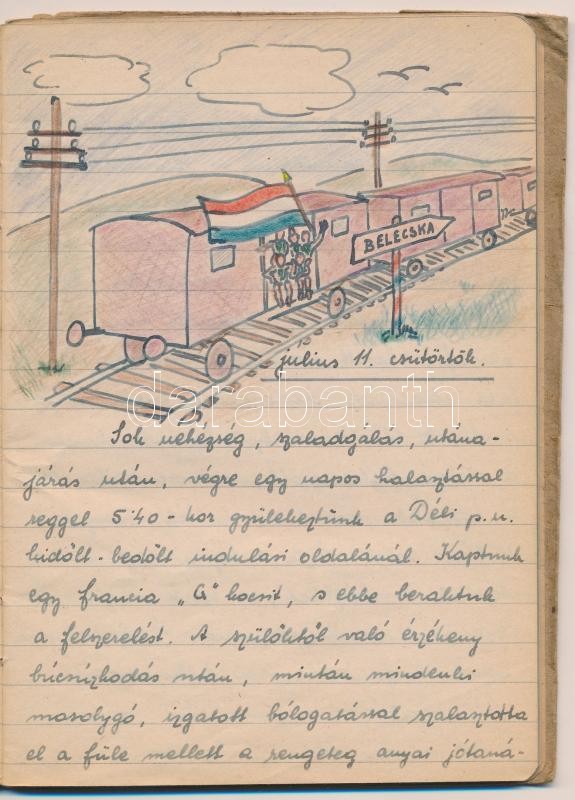 BELECSKA
július 11. csütörtök.
darabanth
Sok nehézség, szaladgálás, utána-
járás után, végre egy napos halasztással
reggel 5·40-kor gyülekeztünk a Déli p.u.
kidőlt-bedőlt indulási oldalánál. Kaptunk
egy francia „G" kocsit, s ebbe beraktuk
a felszerelést. A szülőktől való érzékeny
búcsúzkodás után, miután mindenki
mosolygó, izgatott bólogatással szalasztotta
el a füle mellett a rengeteg anyai jótaná-